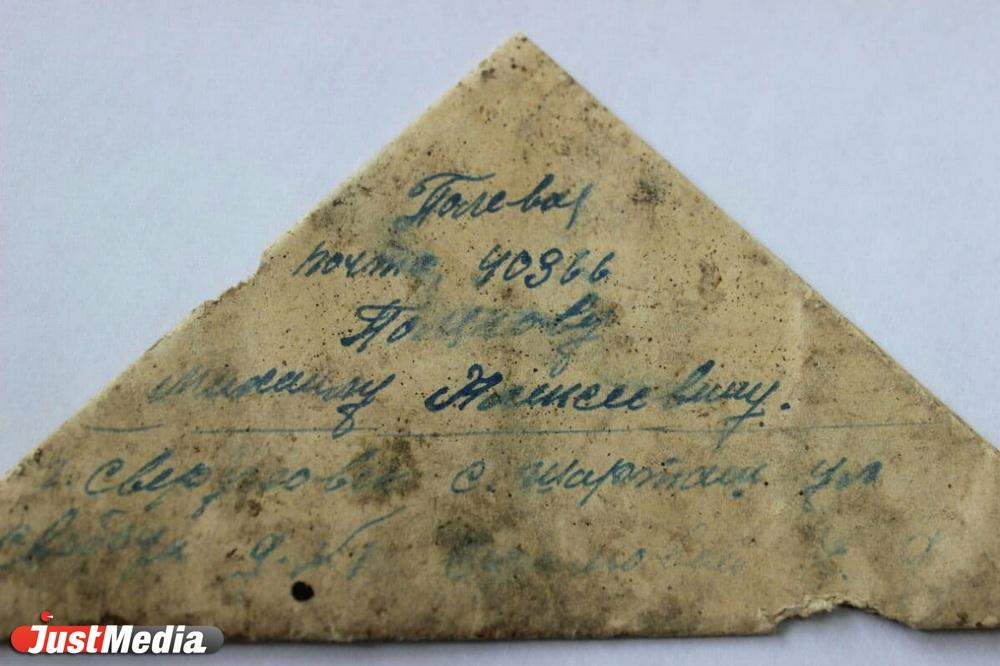 Полевая
почта 40966
Полякову
Михаилу Алексеевичу.
г. Свердловск с. Шарташ ул
Свободы д.
JustMedia